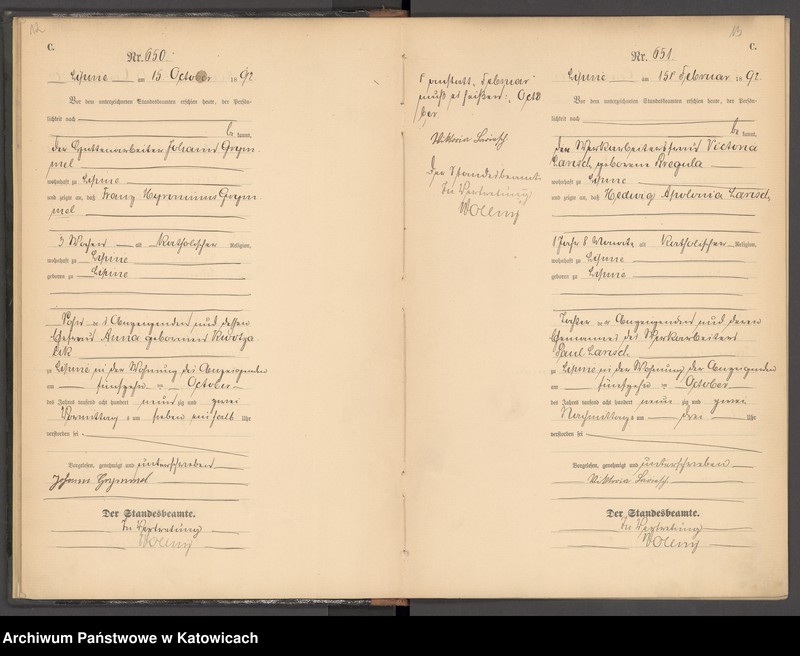 C.
Nr. 650.
Lipine am 15 October 1892
Vor dem unterzeichneten Standesbeamten erschien heute, der Persön-
lichkeit nach
be kannt,
der Hüttenarbeiter Johann Grym
mel
wohnhaft zu Lipine
und zeigte an, daß Franz Hyronimus Grym
mel
3 Wochen alt Katholischer Religion,
wohnhaft zu Lipine
geboren zu Lipine
Sohn des Anzeigenden und dessen
Ehefrau Anna geborenen
zu Lipine in der Wohnung des Anzeigenden
am fünfzehn ten October
des Jahres tausend acht hundert neun zig und zwei
Vormittag s um sieben einhalb Uhr
verstorben sei
Vorgelesen, genehmigt und unterschrieben
Johann Grymmel
Der Standesbeamte.
In Vertretung
Wolny
anstatt „Februar“
muß es heißen: „Octo
ber“
Viktoria Larisch
Der Standesbeamte
In Vertretung
Wolny
C.
Nr. 651.
Lipine am 15t Februar 1892.
Vor dem unterzeichneten Standesbeamten erschien heute, der Persön-
lichkeit nach
be kannt,
die Werkarbeitersfrau Victoria
Larisch geborene Kregula
wohnhaft zu Lipine
und zeigte an, daß Hedwig Apolonia Larisch,
1 Jahr 8 Monate alt Katholischer Religion,
wohnhaft zu Lipine
geboren zu Lipine
Tochter der Anzeigenden und deren
Ehemannes des Werkarbeiters
Paul Larisch
zu Lipine in der Wohnung der Anzeigenden
am fünfzehn ten October
des Jahres tausend acht hundert neun zig und zwei
Nachmittag s um drei Uhr
verstorben sei
Vorgelesen, genehmigt und unterschrieben
Viktoria Larisch
Der Standesbeamte.
In Vertretung
Wolny
Archiwum Państwowe w Katowicach